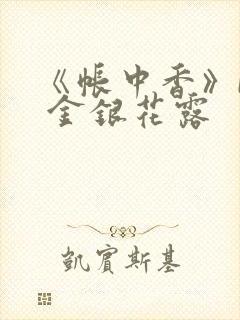 《帐中香》
金银花露
凯宾斯基